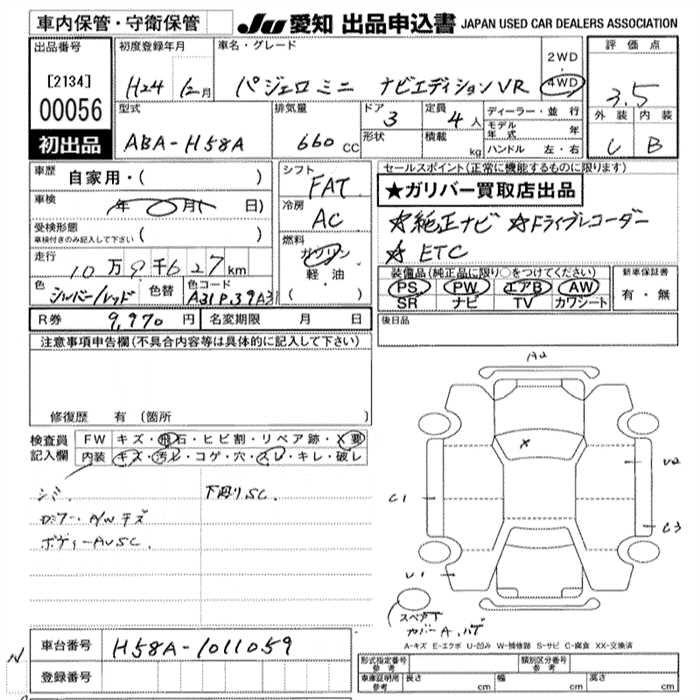 車内保管・守衛保管 JU 愛知 出品申込書 JAPAN USED CAR DEALERS ASSOCIATION
出品番号 [2134] 00056 初出品
初度登録年月 H24年 12月
車名・グレード パジェロミニ ナビエディションVR
2WD 4WD
評価点 3.5
外装 内装 B
型式 ABA-H58A
排気量 660 CC
ドア 3 形状
定員 4人 積載 kg
ディーラー・並行
モデル年式 年
ハンドル 左・右
車歴 自家用・( )
車検 年 月( 日)
受検形態 車検付きのみ記入して下さい ( )
走行 10万9千627km
色 シルバー/レッド 色替 色コード A31P.39A31
シフト FAT
冷房 AC
燃料 ガソリン 軽・油 ( )
セールスポイント(正常に機能するものに限ります)
★ガリバー買取店出品
☆純正ナビ ☆ドライブレコーダー
☆ETC
装備品(純正品に限り○をつけてください)
PS PW エアB AW
SR ナビ TV カワシート
新車保証書 有・無
R券 9,970円 名変期限 月 日
後日品
注意事項申告欄(不具合内容等は具体的に記入して下さい)
修復歴 有 (箇所
検査員記入欄 FW キズ・飛石・ヒビ割・リペア跡・X要
内装 キズ・汚レ・コゲ・穴・スレ・キレ・破レ
シミ 下廻りSC.
ロアー・A/Wキズ
ボディーAUSC.
A2
X
U2
C1
C3
U1
スペアT
カバーA、ハゲ
A-キズ E-エクボ U-凹み W-補修跡 S-サビ C-腐食 XX-交換済
車台番号 H58A-1011059
N
登録番号
形式指定番号 参考 類別区分番号 参考
車庫証明用 参考 長さ cm 幅 cm 高さ cm